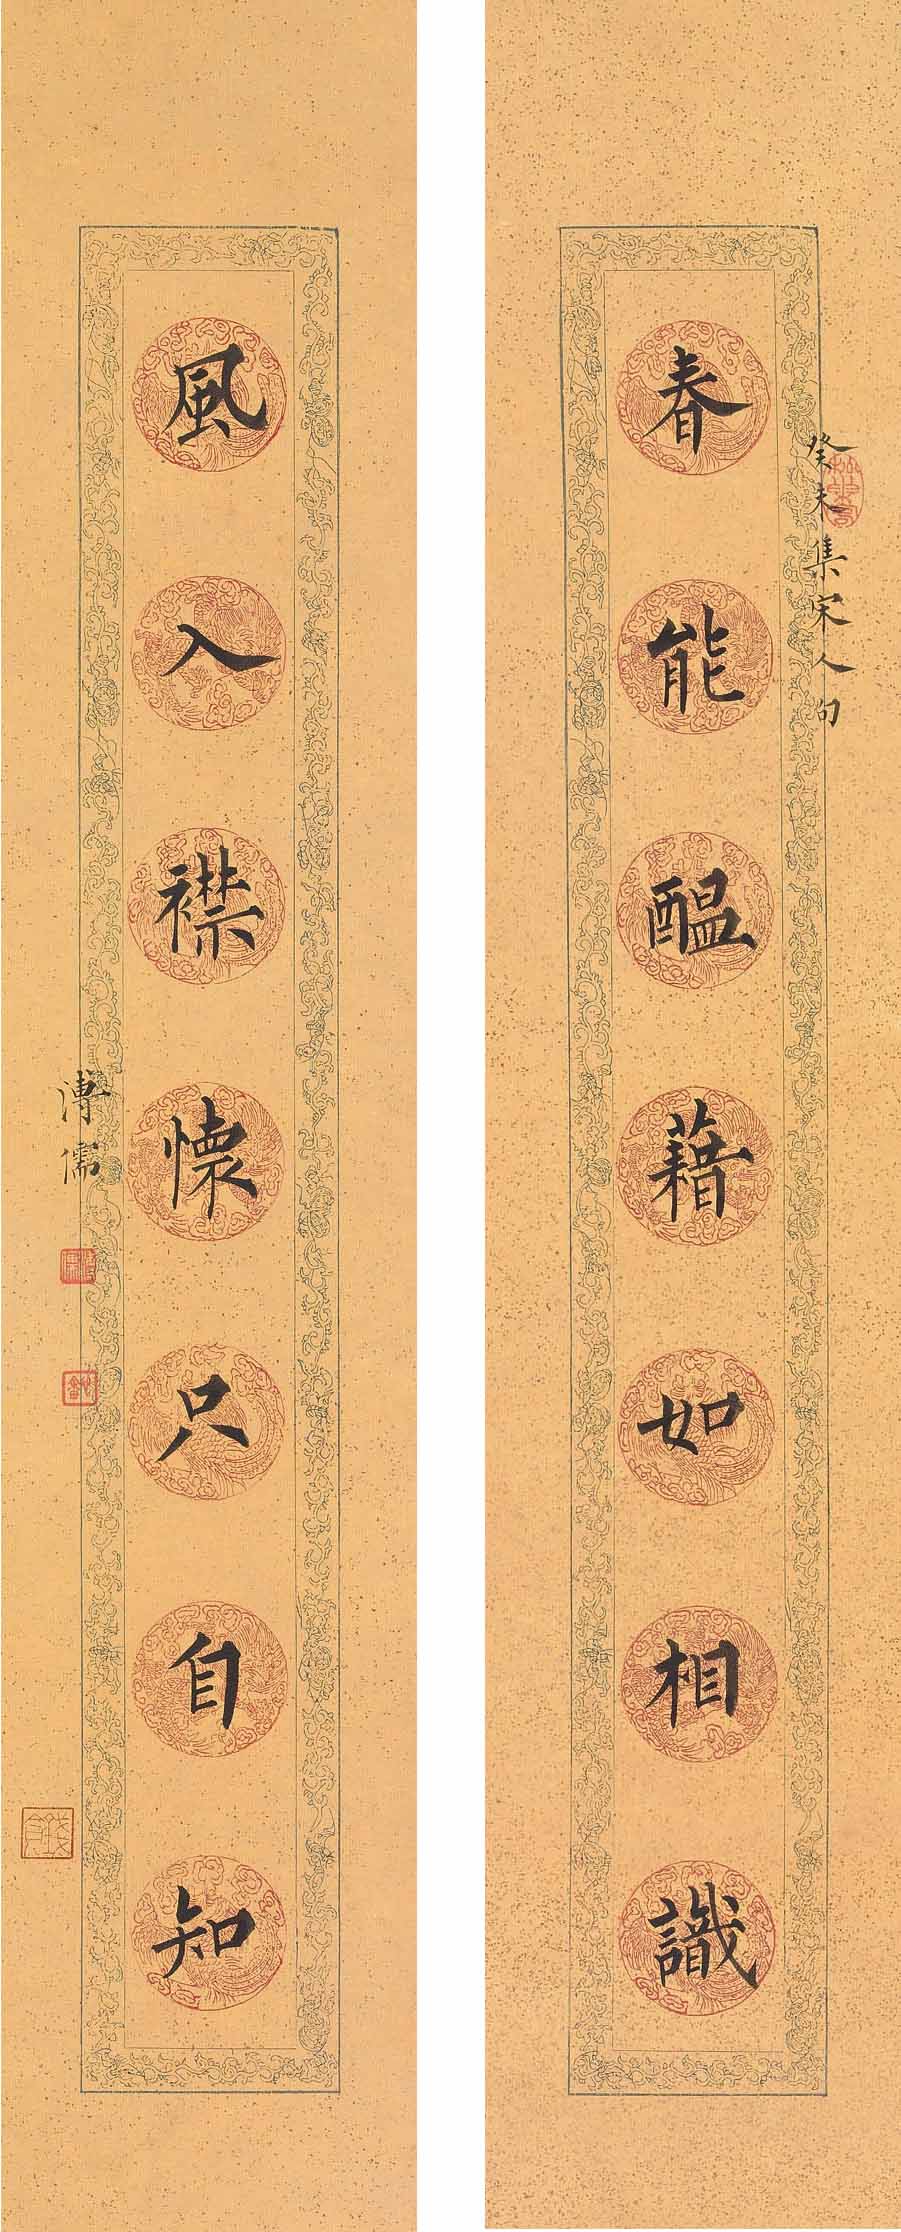 癸未集宋人句
春能醞藉如相識
風入襟懷只自知
溥儒